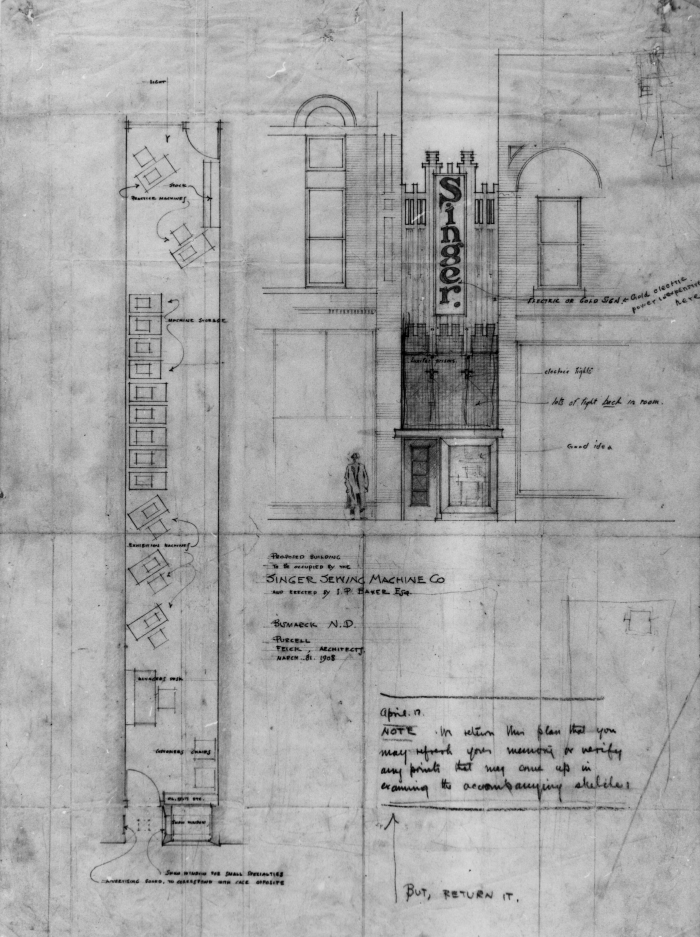 LIGHT
STOCK
PRACTICE MACHINES
MACHINE STORAGE
EXHIBITION MACHINES
MANAGERS DESK
CUSTOMERS CHAIRS
SHOW WINDOW
SHOW WINDOW FOR SMALL SPECIALTIES
ADVERTISING BOARD, TO CORRESPOND WITH FACE OPPOSITE
Singer.
ELECTRIC OR GOLD SIGN Gold electric
here
electric lights
lots of light back in room.
Good idea
PROPOSED BUILDING
TO BE OCCUPIED BY THE
SINGER SEWING MACHINE CO
AND ERECTED BY I. P. BAKER ESQ.
BISMARCK N.D.
PURCELL
FEICK, ARCHITECTS
MARCH 31. 1908
April. 17.
NOTE We return this plan that you
may refresh your memory or verify
any points that may come up in
examing the accompanying sketches
BUT, RETURN IT.